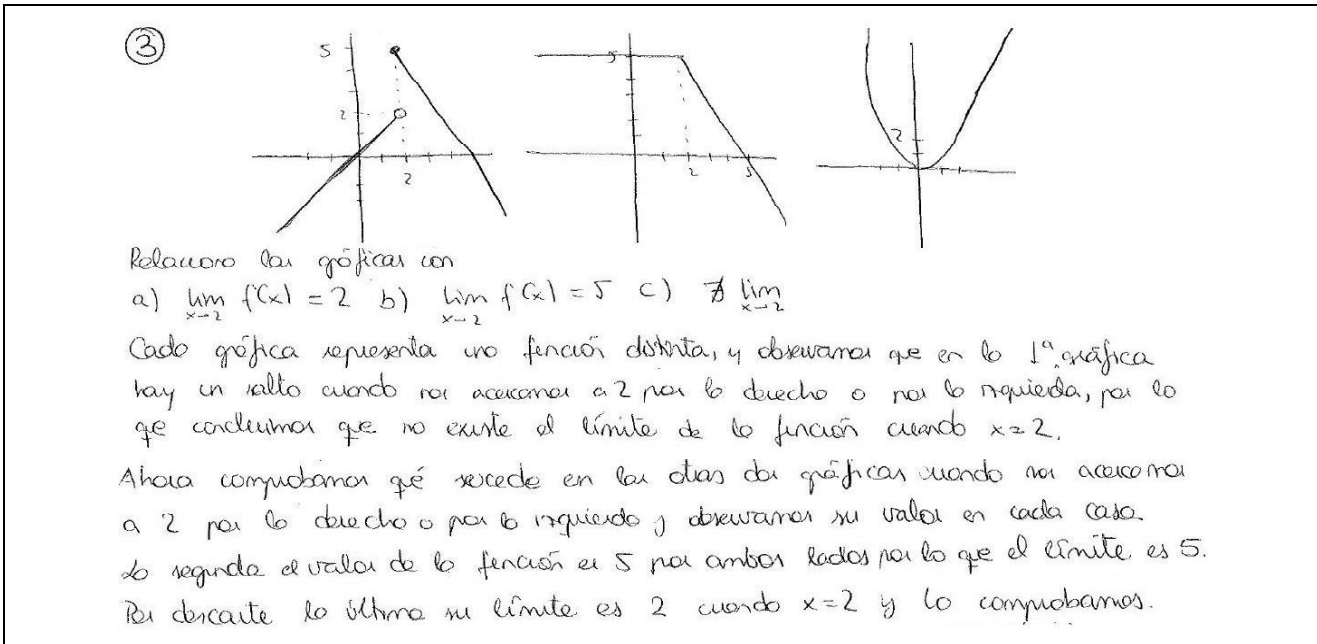 ③
5
2
2
5
2
5
2
Relaciono las gráficas con
a) lim x→2 f(x) = 2 b) lim x→2 f(x) = 5 c) ∄ lim x→2
Cada gráfica representa una función distinta, y observamos que en la 1ª gráfica
hay un salto cuando nos acercamos a 2 por la derecha o por la izquierda, por lo
que concluimos que no existe el límite de la función cuando x=2.
Ahora comprobamos qué sucede en las otras dos gráficas cuando nos acercamos
a 2 por la derecha o por la izquierda y observamos su valor en cada caso.
La segunda el valor de la función es 5 por ambos lados por lo que el límite es 5.
Por descarte la última su límite es 2 cuando x=2 y lo comprobamos.